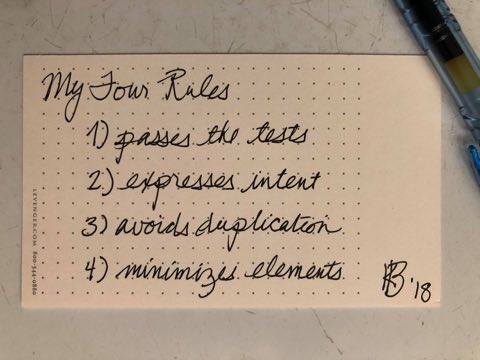 My Four Rules
1) passes the tests
2) expresses intent
3) avoids duplication
4) minimizes elements
KB '18
LEVENGER.COM 800-544-0880